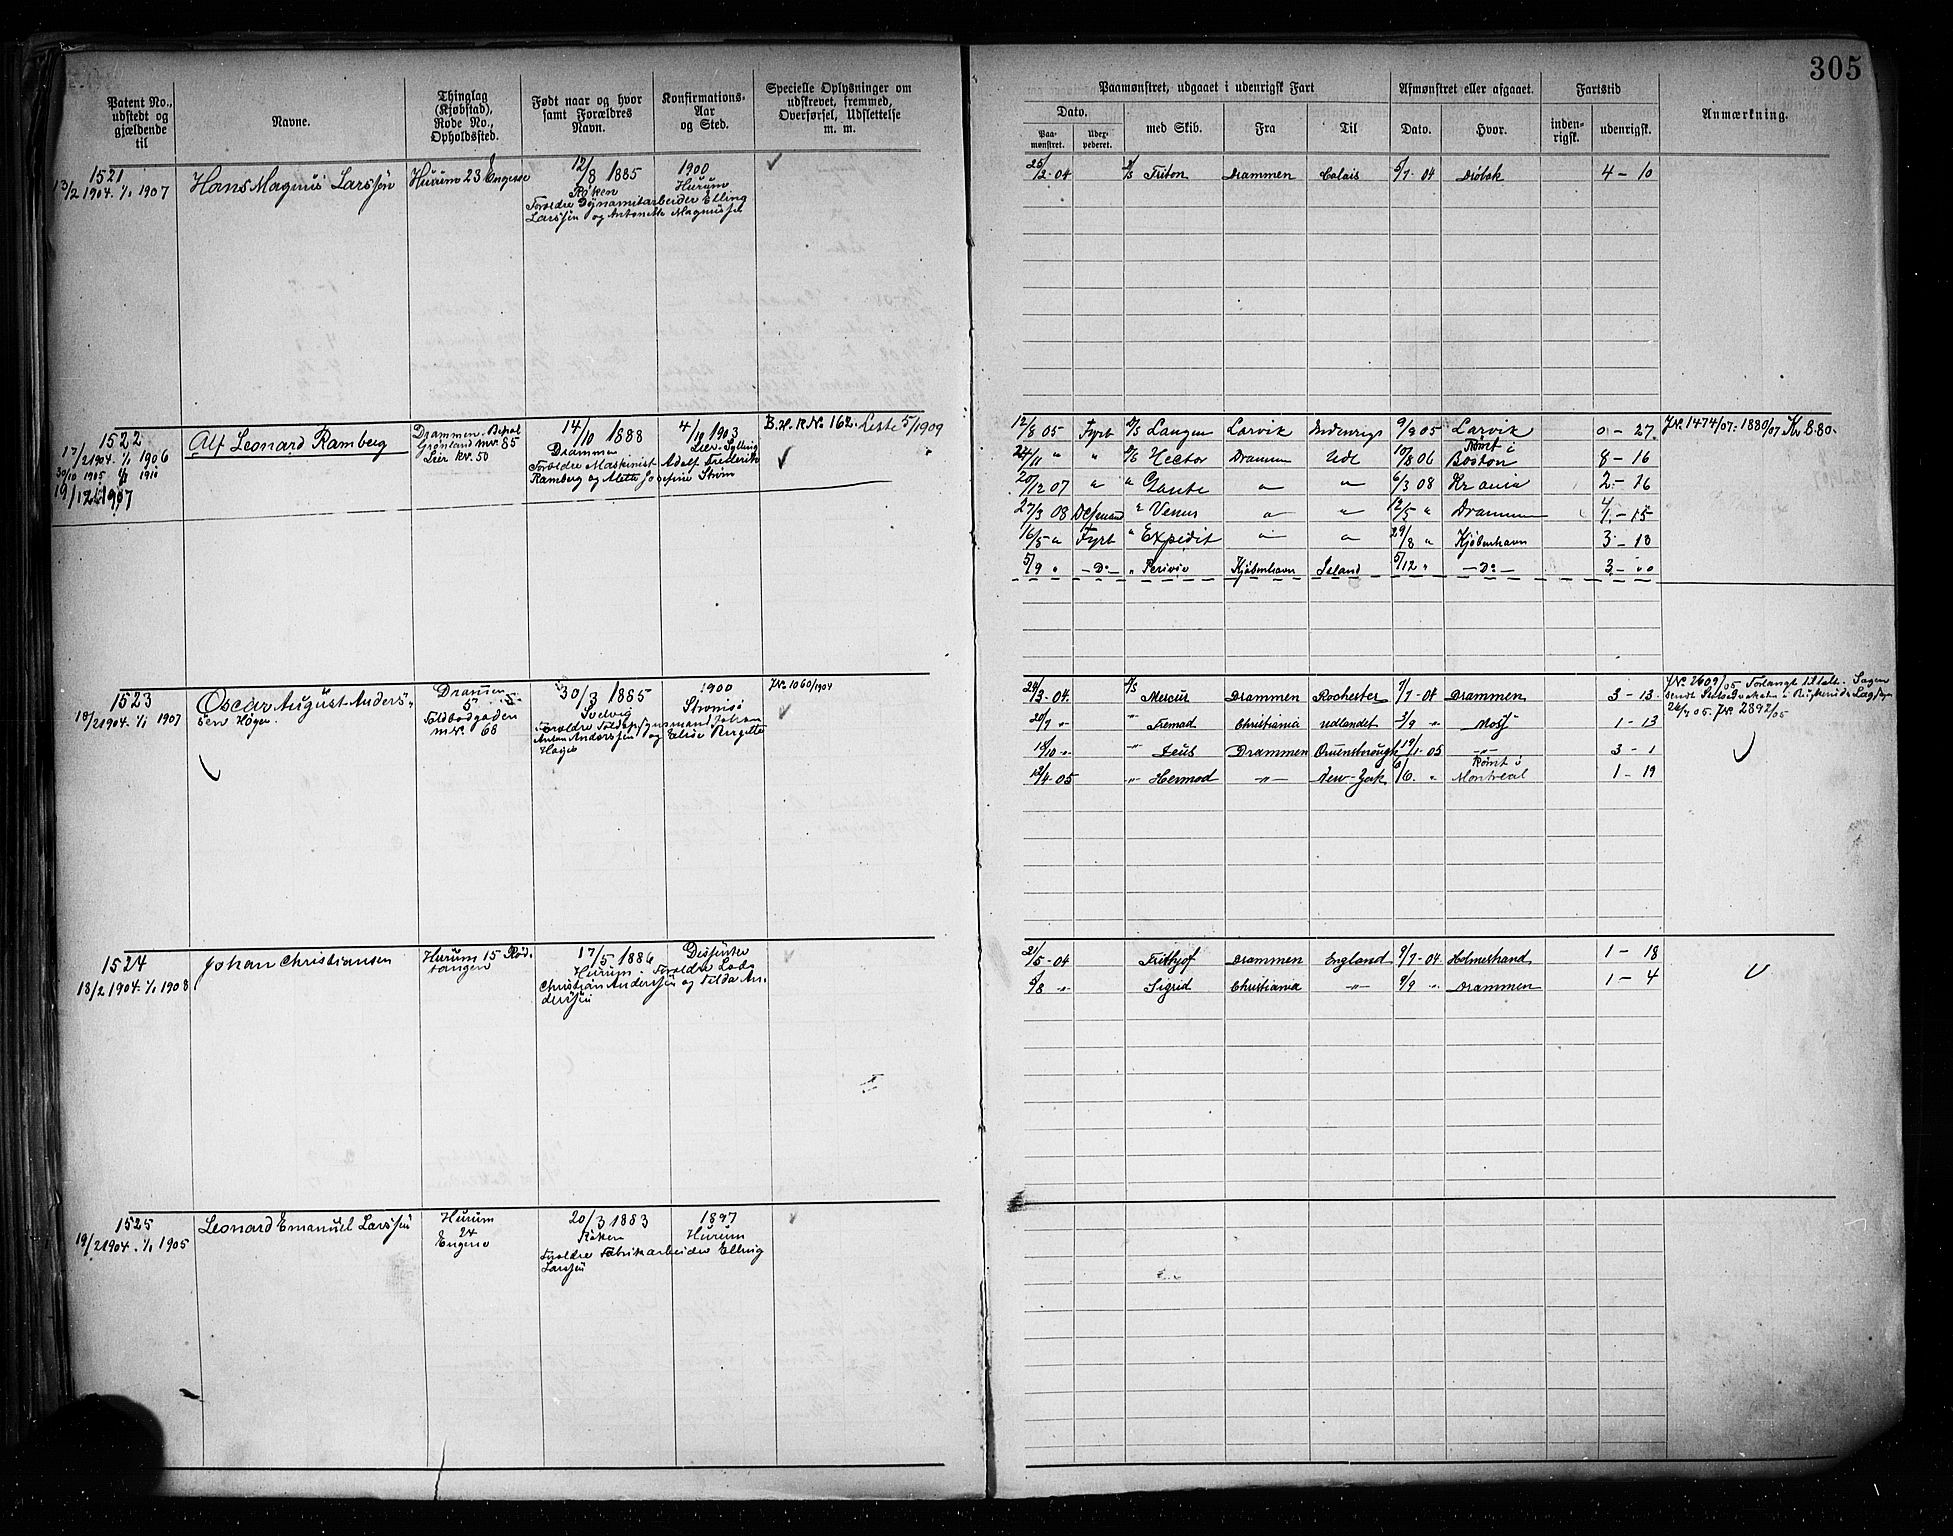 305
Patent No., udstedt og gjældende til
Navne.
Thinglag (Kjøbstad), Rode No., Opholdssted.
Født naar og hvor samt Forældres Navn.
Konfirmations-Aar og Sted.
Specielle Oplysninger om udskrevet, fremmed, Overførsel, Udslettelse m. m.
Paamønstret, udgaaet i udenrigsk Fart
Afmønstret eller afgaaet.
Fartstid
Anmærkning.
Dato.
Paa-mønstret.
Udex-pederet.
med Skib.
Fra
Til
Dato.
Hvor.
inden-rigsk.
udenrigsk.
1521
13/2 1904. 1/1 1907
Hans Magnus Larssen
Hurum 23 Engene
12/8 1885
Røken
Forældre Dynamitarbeider Elling
Larssen og Antonette Magnussen
1900
Hurum
25/2-04 Triton Drammen Calais 5/7-04 Drøbak 4-10
1522
17/2 1904. 1/1 1906
30/10 1905 1/1 1910
19/12 1907
Alf Leonard Ramberg
Drammen
Grønland mr. 85
Lier kr. 50
14/10 1888
Drammen
Forældre Maskinist Adolf Frederik
Ramberg og Alette Josefine Strøm
4/10 1903
Lier - Sylling
B. H. R. No. 162. Liste 5/1909
12/8 05 Fyrb D/S Langen Larvik Indenrigs 9/9 05 Larvik 0-27.
24/11 " " D/S Hector Drammen Udl 10/8 06 Rømt i Boston 8-16
20/12 07 " " Gante " " 6/3 08 Kr ania 2-16
27/3 08 " Venus " " 12/5 " Drammen 4-15
16/5 " Fyrb " Expedit " " 29/8 " Kjøbenhavn 3-13
5/9 " -Do- " Kjøbenhavn Island 5/12 " -Do- 3-"
J.No. 1474/07.-1880/07 Kr 8.80.
1523
18/2 1904. 1/1 1907
Oscar August Anders-
sen Høger
Drammen
5
Toldbodgaden
mr. 68
30/3 1885
Svelvig
Forældre Toldopsynsmand Johan
Anton Anderssen og Elise Birgitte
Høger
1900
Strømsø
J.No. 1060/1904
24/3-04. D/S Mercur Drammen Rochester 7/7-04 Drammen 3-13
20/7 " " Fremad Christiania Udlandet 2/9 " Moss 1-13
18/10 " " Zeus Drammen Queensborough 19/1-05 " 3-1
12/4-05 " Hermod " New-York 6/6. " Rømt i Montreal 1-19
J.No. 2609/05 Forlangt tiltalt. Sagen
26/7 05. J.No. 2892/05
1524
18/2 1904. 1/1 1908
Johan Christiansen
Hurum 15 Rød-
tangen
17/5 1886
Hurum - Forældre Lods
Christian Anderssen og Tilda An-
derssen
Dissenter
21/5-04 Frithjof Drammen England 9/7-04 Holmestrand 1-18
5/8 " Sigrid Christiania " 9/9 " Drammen 1-4
1525
19/2 1904. 1/1 1905
Leonard Emanuel Larssen
Hurum
24
Engene
20/3 1883
Røken
Forældre Fabrikarbeider Elling
Larssen
1897
Hurum